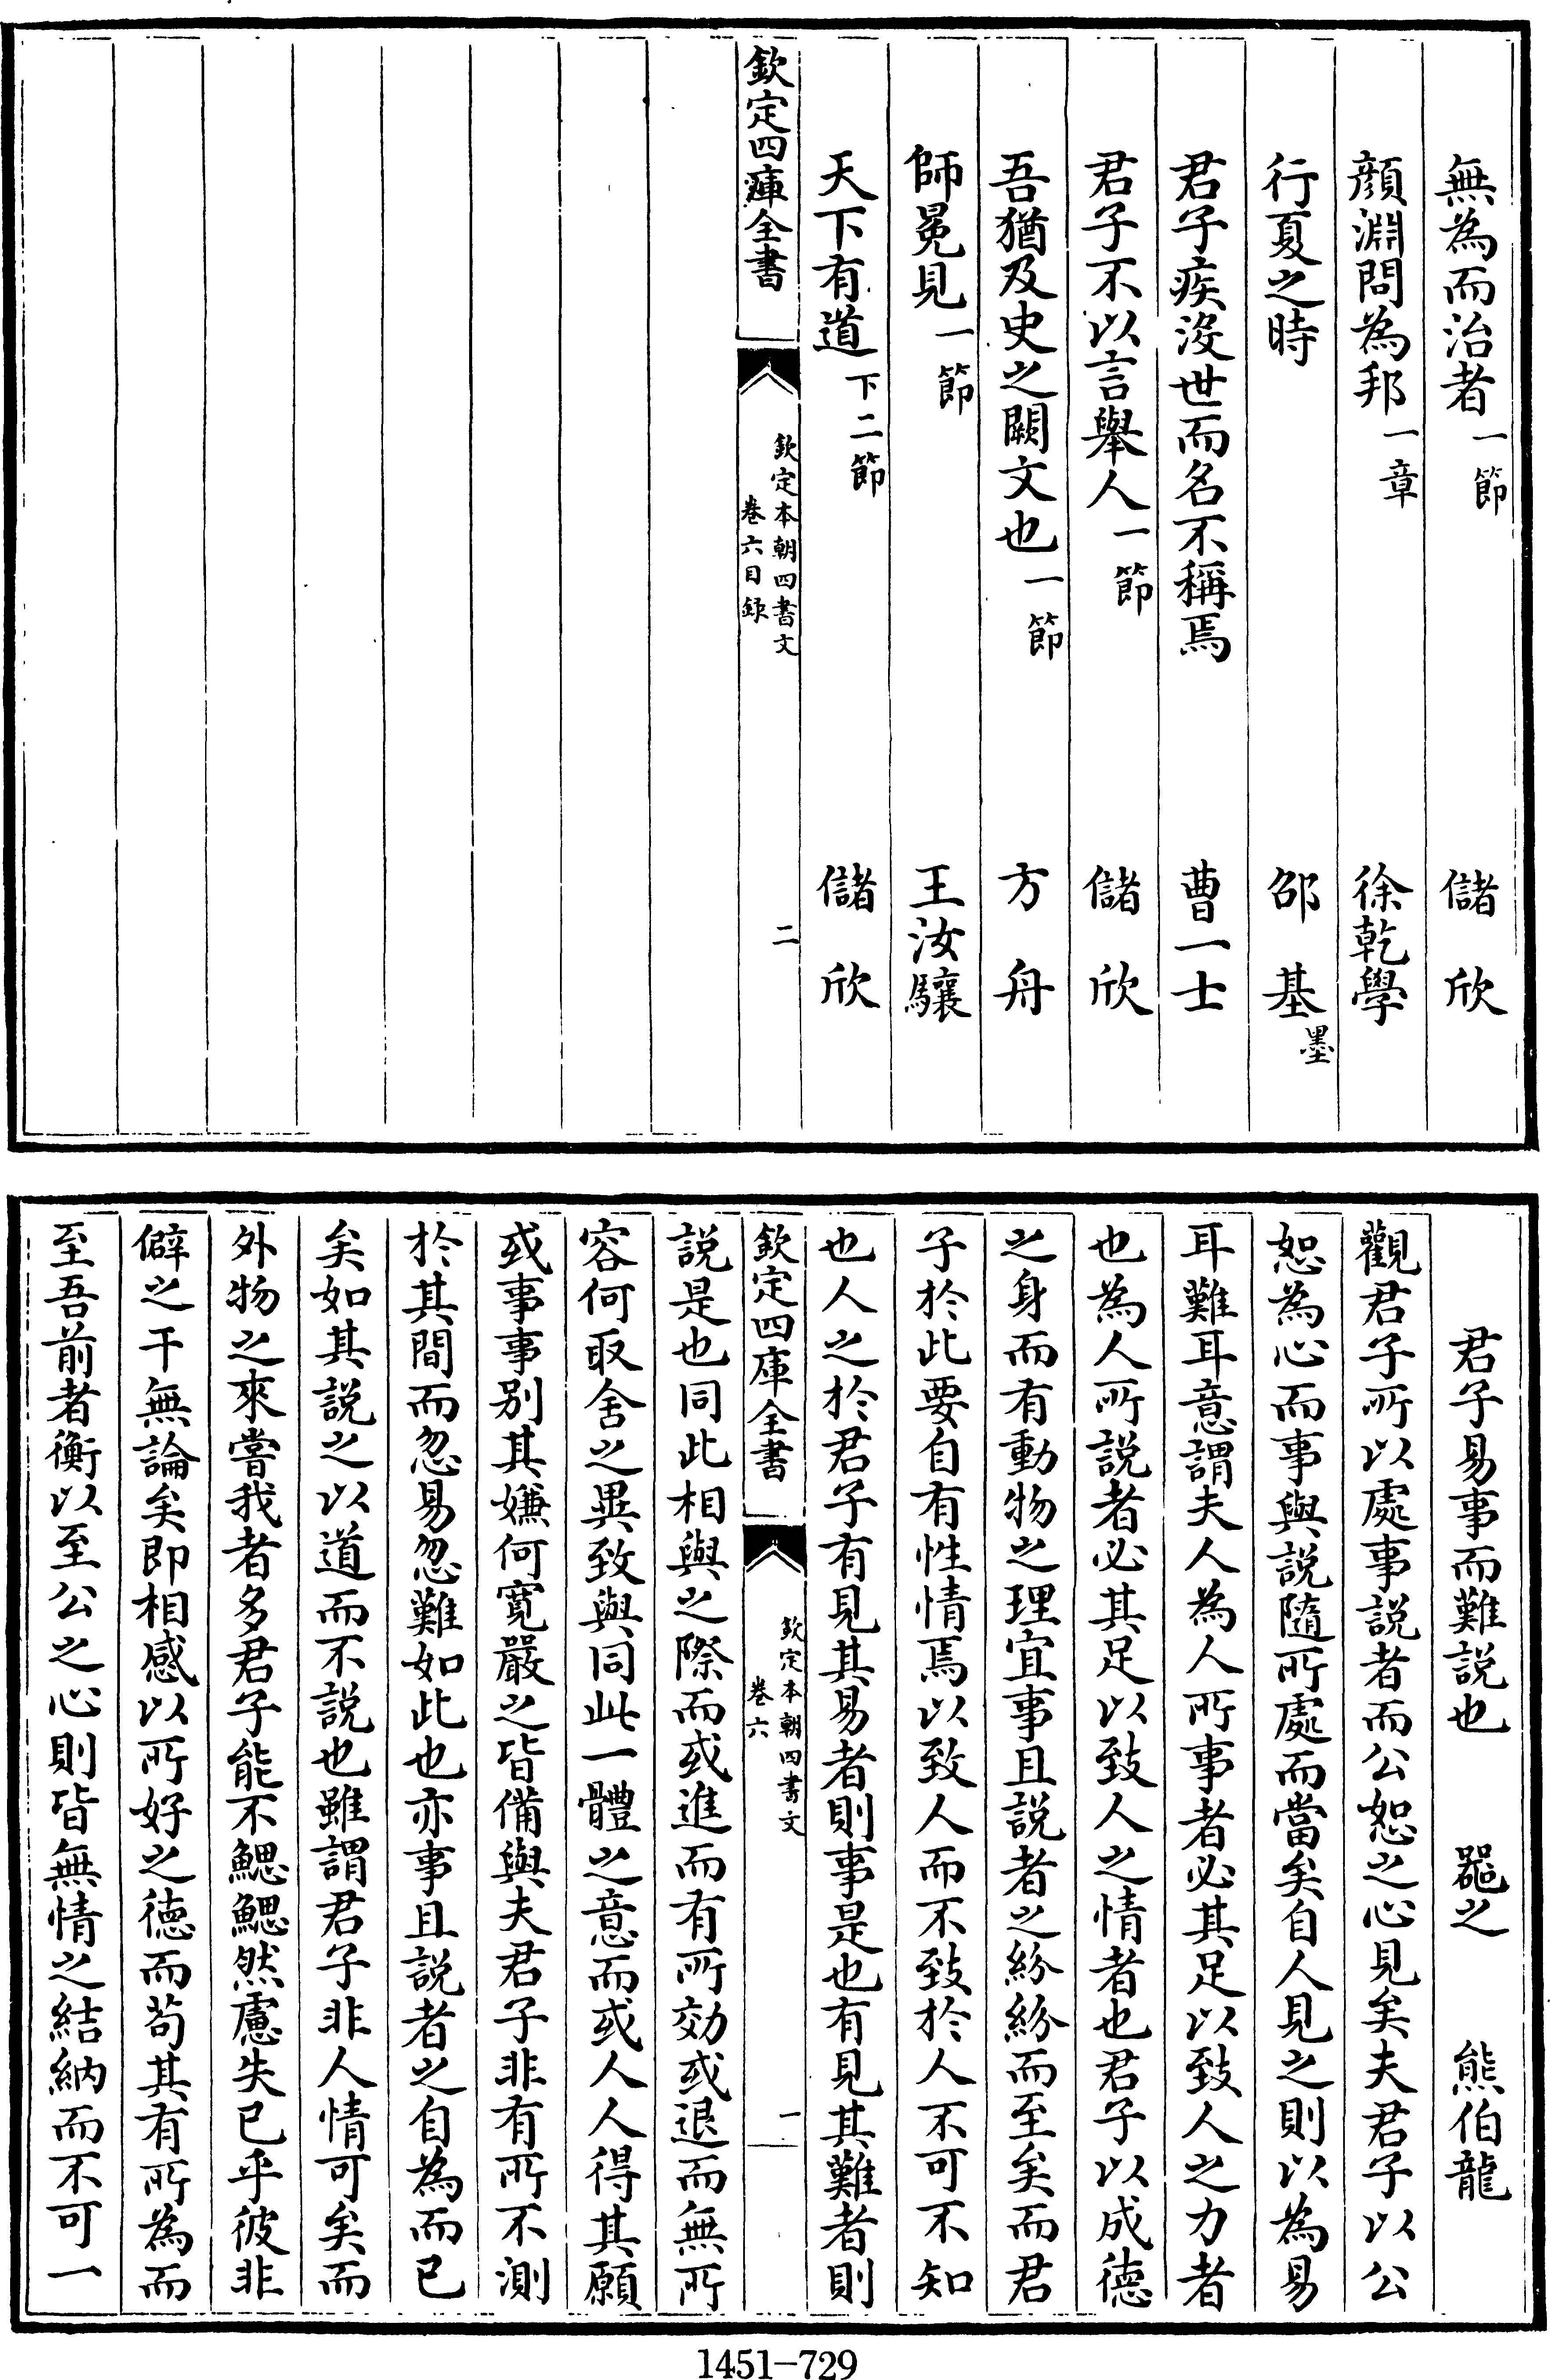 無為而治者一節　儲欣
顔淵問為邦一章　徐乾學
行夏之時　邵基墨
君子疾没世而名不稱焉　曹一士
君子不以言舉人一節　儲欣
吾猶及史之闕文也一節　方舟
師冕見一節　王汝驤
天下有道下二節　儲欣
欽定四庫全書
欽定本朝四書文
卷六目録
二
君子易事而難說也　器之　熊伯龍
觀君子所以處事説者而公恕之心見矣夫君子以公
恕為心而事與説隨所處而當矣自人見之則以為易
耳難耳意謂夫人為人所事者必其足以致人之力者
也為人所説者必其足以致人之情者也君子以成德
之身而有動物之理宜事且説者之紛紛而至矣而君
子於此要自有性情焉以致人而不致於人不可不知
也人之於君子有見其易者則事是也有見其難者則
欽定四庫全書
欽定本朝四書文
卷六
一
説是也同此相與之際而或進而有所効或退而無所
容何取舍之異致與同此一體之意而或人人得其願
或事事别其嫌何寛嚴之皆備與夫君子非有所不測
於其間而忽易忽難如此也亦事且説者之自為而已
矣如其説之以道而不説也雖謂君子非人情可矣而
外物之來嘗我者多君子能不鰓鰓然慮失已乎彼非
僻之干無論矣即相感以所好之德而茍其有所為而
至吾前者衡以至公之心則皆無情之結納而不可一
1451-729